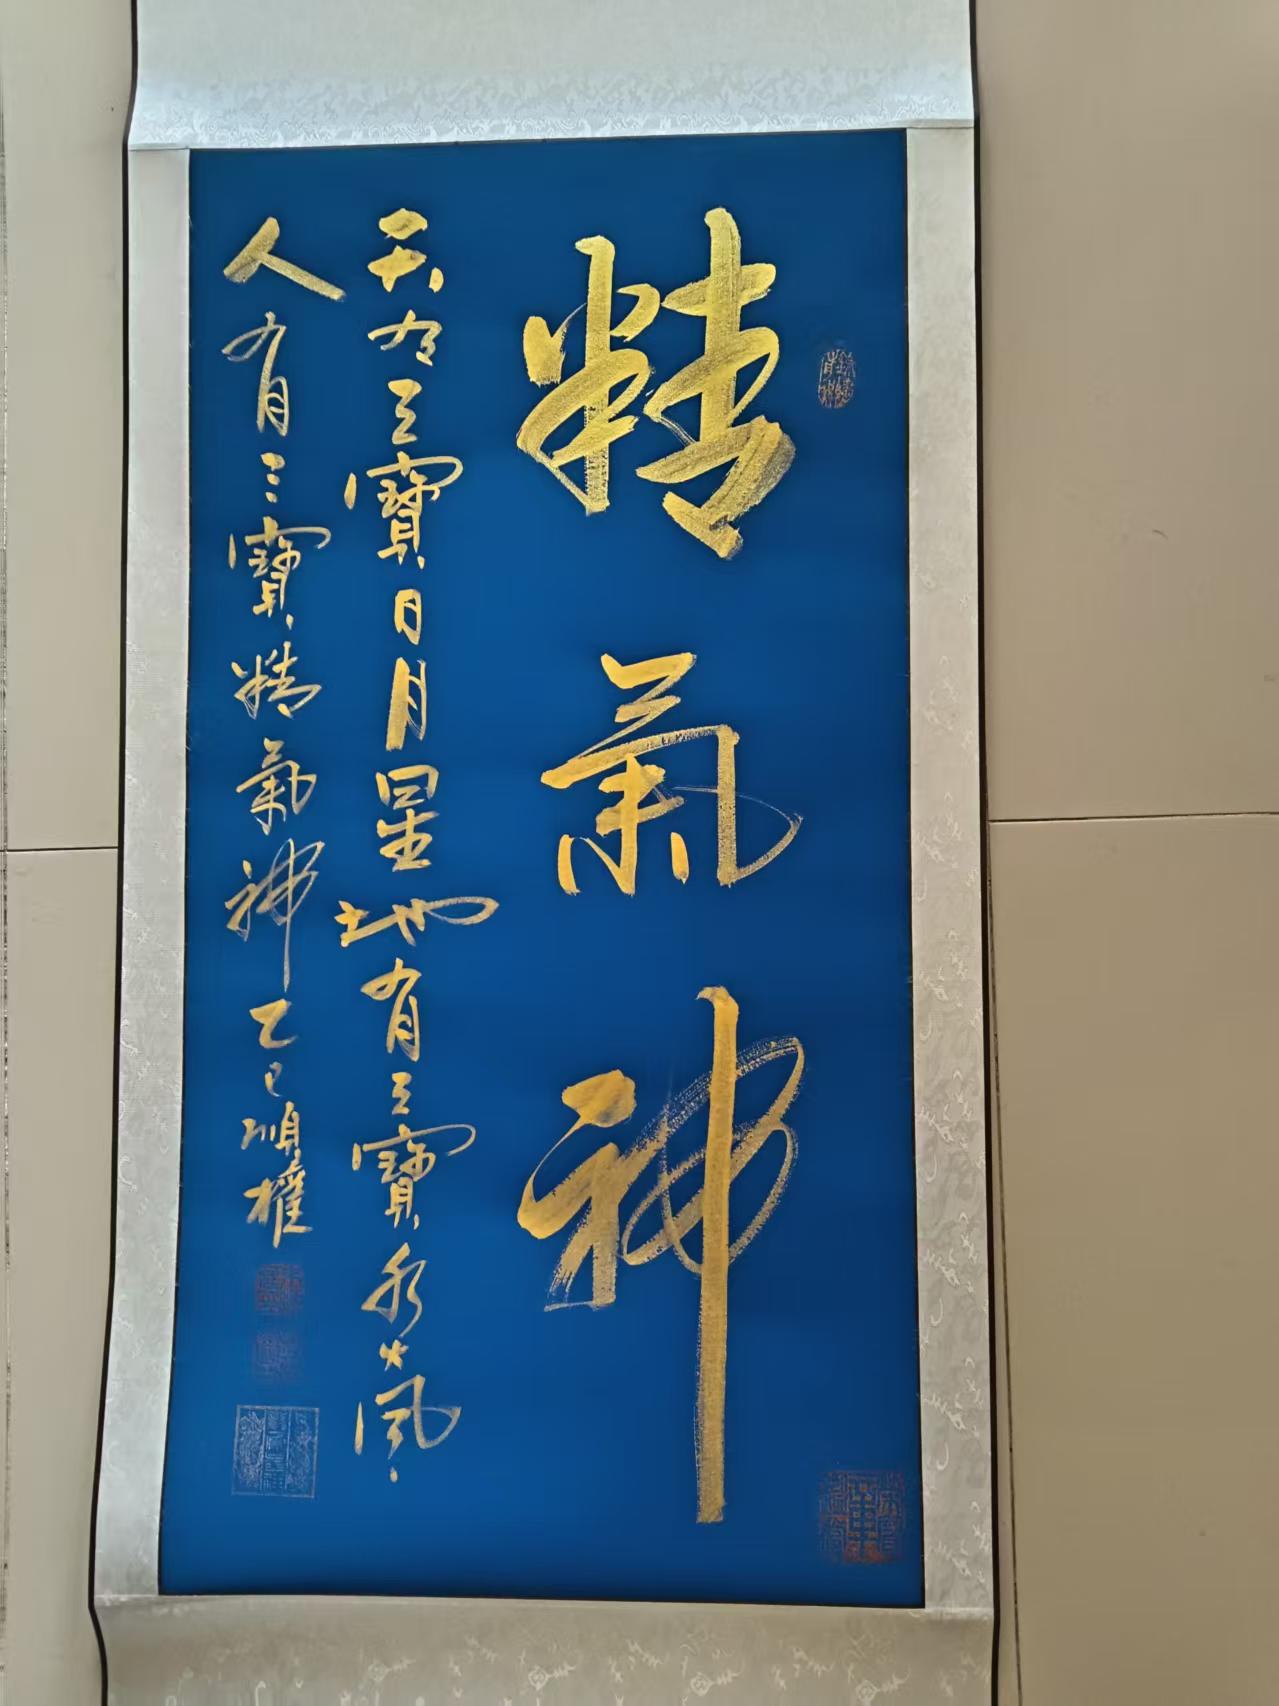 精氣神
天有三寶日月星地有三寶水火風
人有三寶精氣神乙巳順權